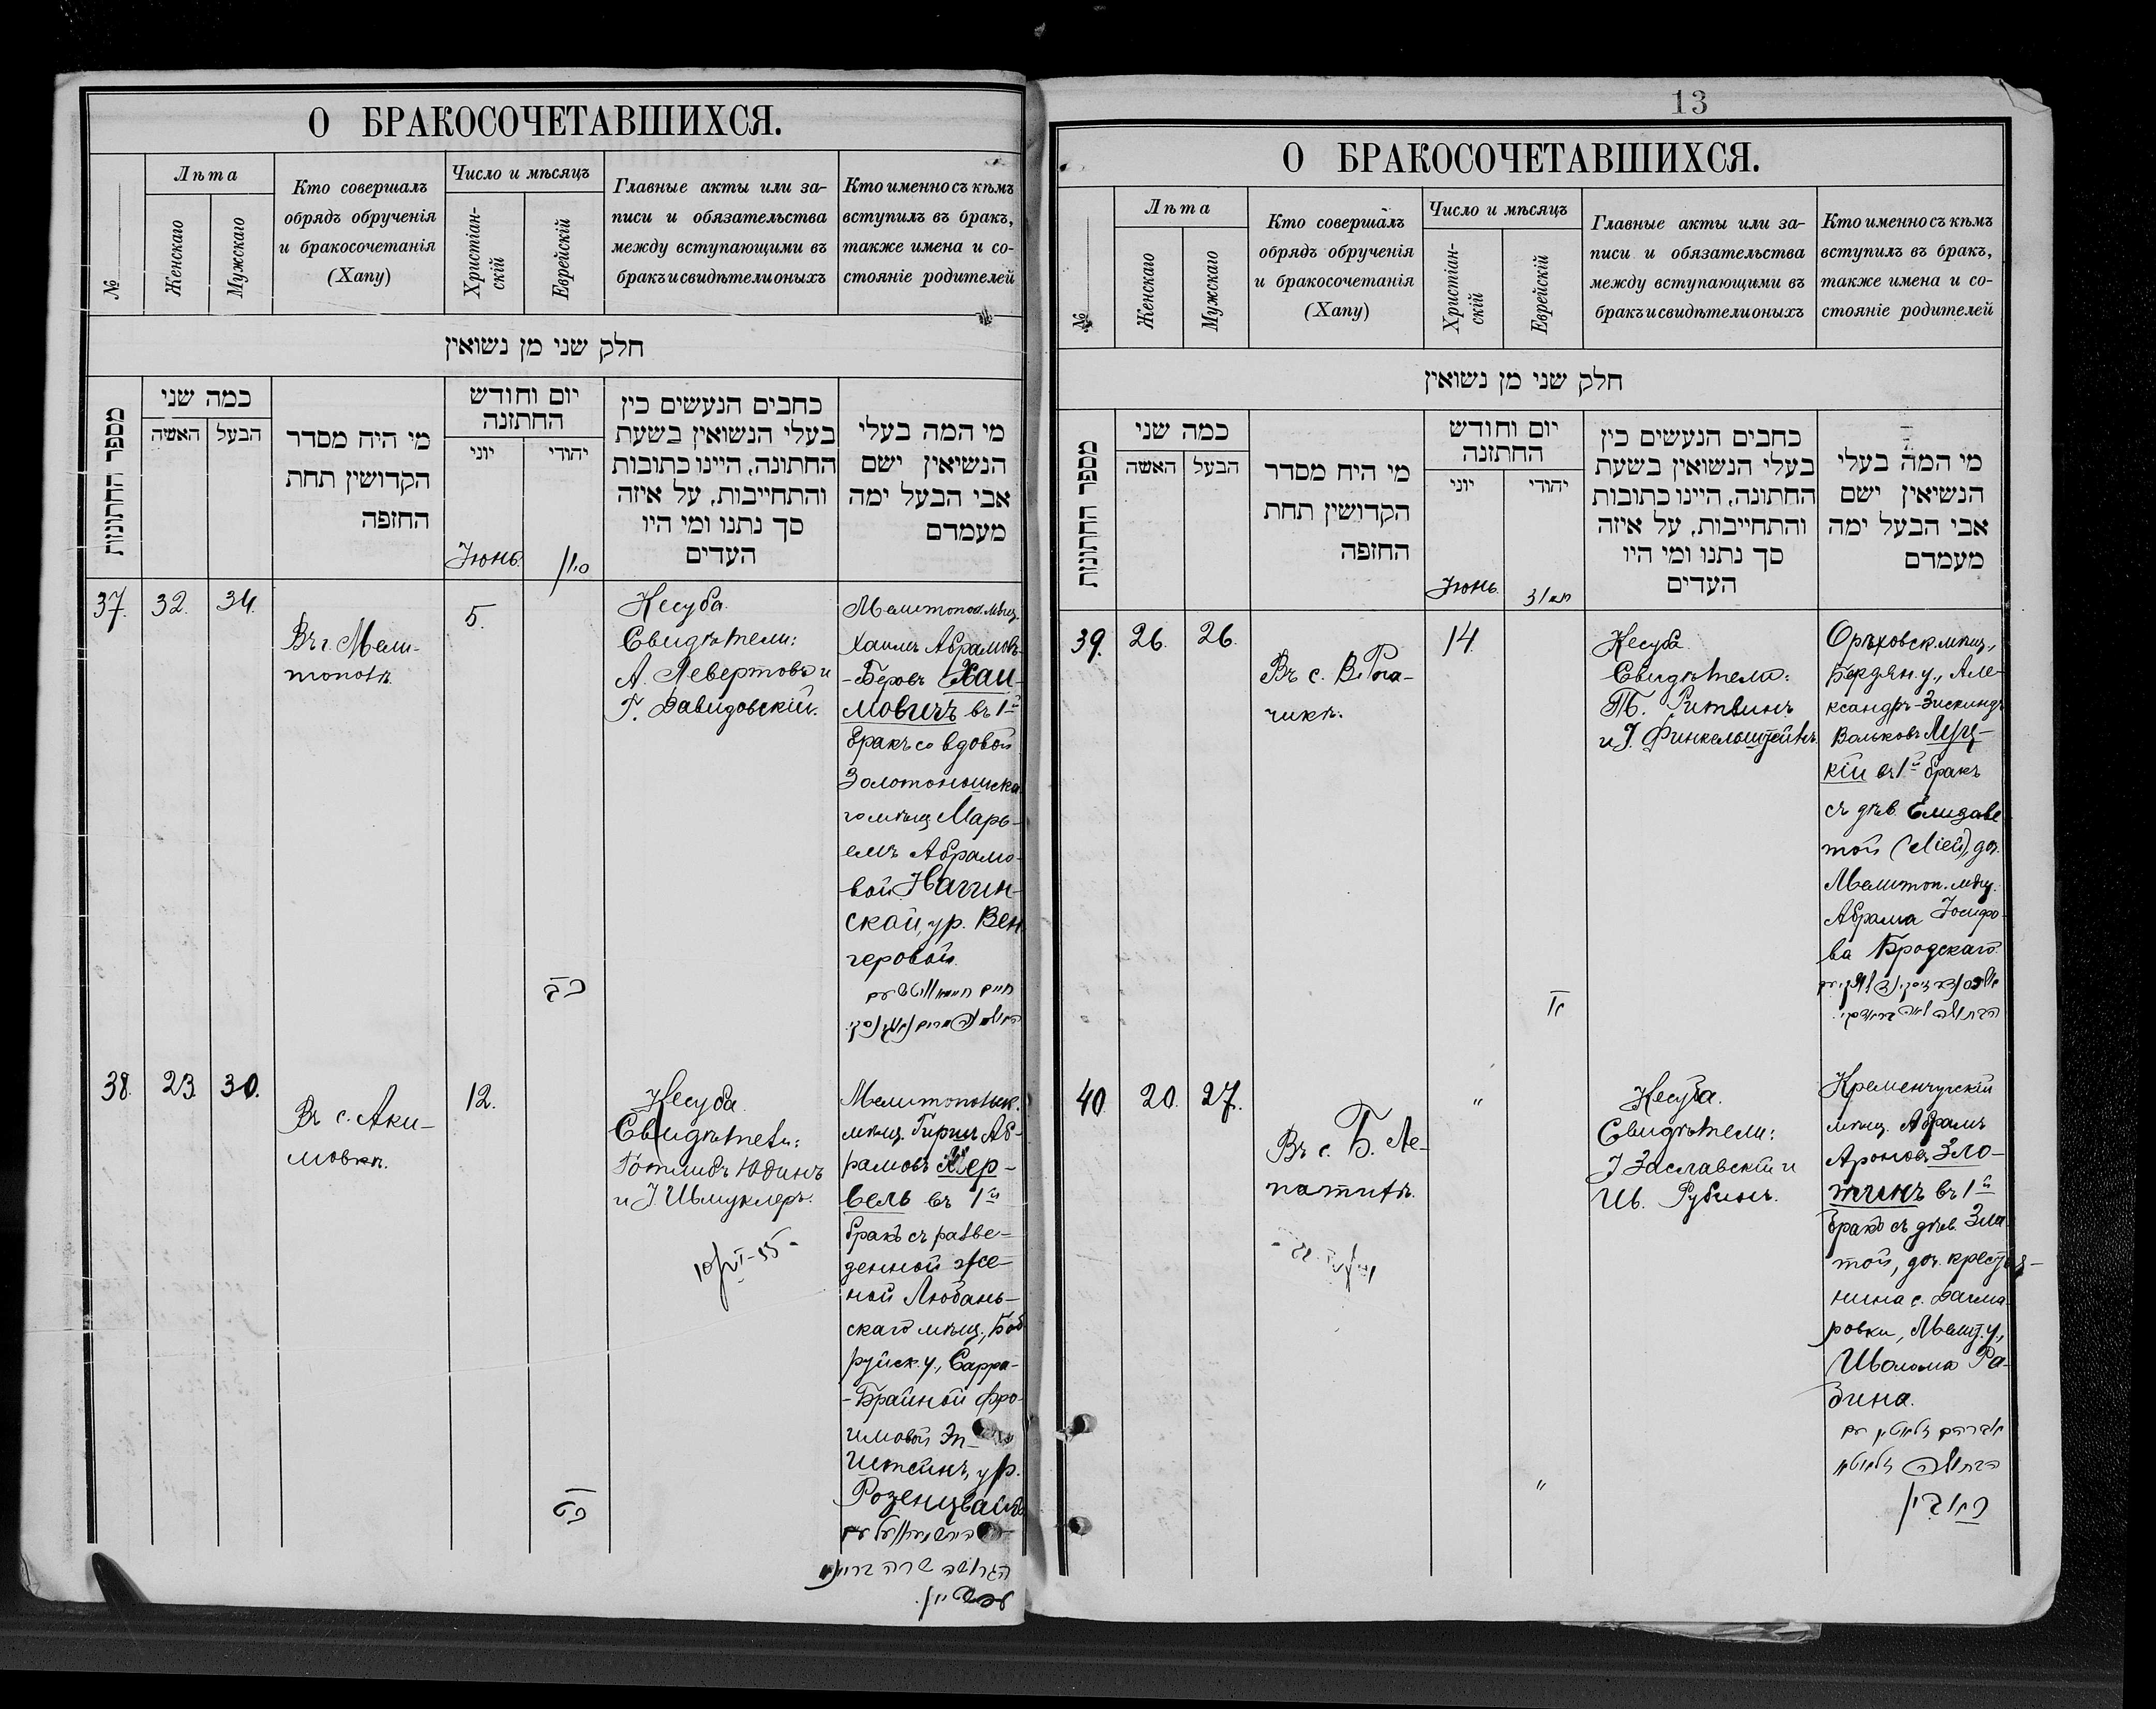 О БРАКОСОЧЕТАВШИХСЯ.
№
Лѣта
Женскаго
Мужскаго
Кто совершалъ
обрядъ обрученія
и бракосочетанія
(Хапу)
Число и мѣсяцъ
Христіан-
скій
Еврейскій
Главные акты или за-
писи и обязательства
между вступающими въ
бракъ и свидѣтели оныхъ
Кто именно съ кѣмъ
вступилъ въ бракъ,
также имена и со-
стояніе родителей
חלק שני מן נשואין
מספר החתונות
כמה שני
האשה
הבעל
מי היח מסדר
הקדושין תחת
החזפה
יום וחודש
החתזנה
יוני
יהודי
Іюнь.
סיון
כחבים הנעשים כין
בעלי הנשואין בשעת
החתונה, היינו כתובות
והתחייבות, על איזה
סך נתנו ומי היו
העדים
מי המה בעלי
הנשיאין ישם
אבי הבעל ימה
מעמדם
37.
32.
34.
Въ г. Мели-
тополѣ.
5.
כב
Кесуба.
Свидѣтели:
А. Левертовъ и
Г. Давидовскій.
Мелитопол. мѣщ.
Хаимъ Абрамовъ-
-Беровъ Хаи-
мовичъ въ 1й
бракъ со вдовой
Золотоношска-
го мѣщ. Марь-
емъ Абрамо-
вой Нагин-
ской, ур. Вен-
геровой.
38.
23.
30.
Въ с. Аки-
мовкѣ.
12.
כט
Кесуба.
Свидѣтели:
Готлибъ Юдинъ
и І. Шмуклеръ.
Мелитопольск.
мѣщ. Гиршъ Аб-
рамовъ
вель въ 1й
бракъ съ разве-
денной же-
ной Любань-
скаго мѣщ., Боб-
руйск. у., Сарра-
-Брайной Фро-
имовой Эп-
штейнъ, ур.
Розенцвайгъ
הגרושה שרה בריינא
עפשטיין.
13
О БРАКОСОЧЕТАВШИХСЯ.
№
Лѣта
Женскаго
Мужскаго
Кто совершалъ
обрядъ обрученія
и бракосочетанія
(Хапу)
Число и мѣсяцъ
Христіан-
скій
Еврейскій
Главные акты или за-
писи и обязательства
между вступающими въ
бракъ и свидѣтели оныхъ
Кто именно съ кѣмъ
вступилъ въ бракъ,
также имена и со-
стояніе родителей
חלק שני מן נשואין
מספר החתונות
כמה שני
האשה
הבעל
מי היח מסדר
הקדושין תחת
החזפה
יום וחודש
החתזנה
יוני
יהודי
Іюнь.
תמוז
כחבים הנעשים כין
בעלי הנשואין בשעת
החתונה, היינו כתובות
והתחייבות, על איזה
סך נתנו ומי היו
העדים
מי המה בעלי
הנשיאין ישם
אבי הבעל ימה
מעמדם
39.
26.
26.
Въ с. В. Рога-
чикѣ.
14.
Кесуба.
Свидѣтели:
Т. Ритвинъ
и І. Финкельштейнъ.
Орѣховск. мѣщ.,
Бердян. у., Але-
ксандръ-Зискиндъ
Вольковъ Луц-
кій въ 1й бракъ
съ дѣв. Елизаве-
той (Ліей), доч.
Мелитоп. мѣщ.
Абрама Іосифо-
ва Бродскаго.
הבתולה ליאה בראדסקי.
40.
20.
27.
Въ с. Б. Ле-
патихѣ.
"
"
Кесуба.
Свидѣтели:
І. Заславскій и
Ш. Рубинъ.
Кременчугскій
мѣщ. Абрамъ
Ароновъ Зло-
тинъ въ 1й
бракъ съ дѣв. Зла-
той, доч. крестья-
нина с. Дагма-
ровки, Мелит. у.,
Шолома Ра-
бина.
אברהם זלאטין עם
הבתולה זלאטע
ראבין